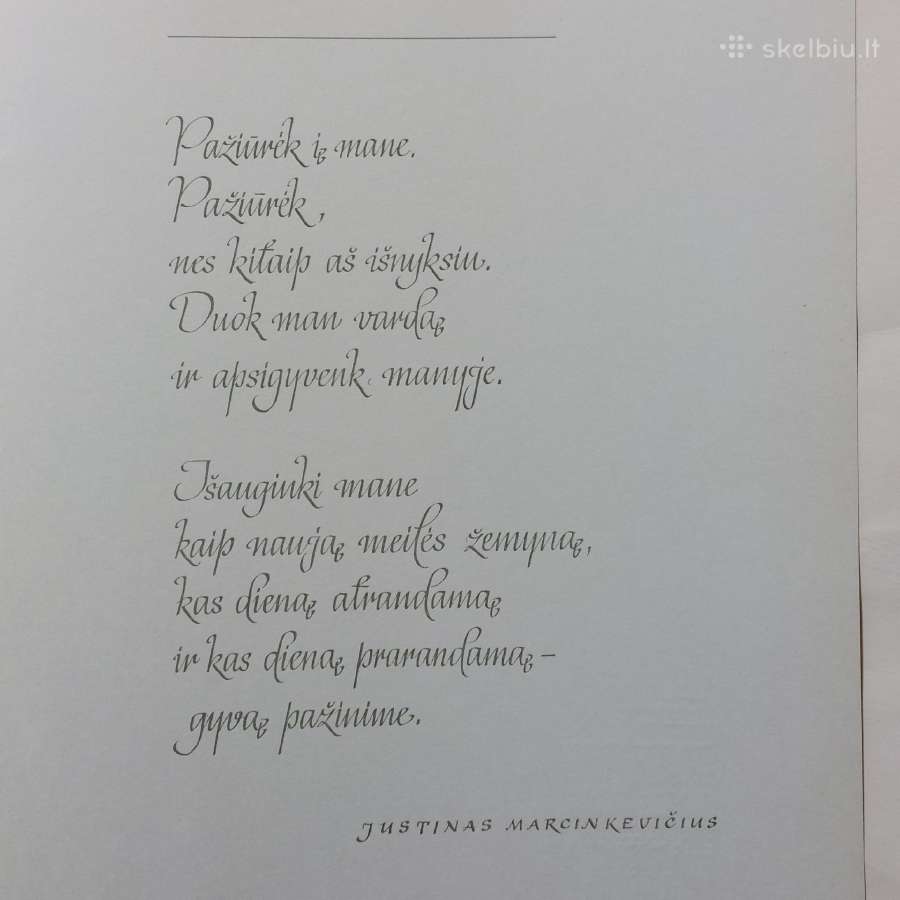 skelbiu.lt
Pažiūrėk į mane.
Pažiūrėk,
nes kitaip aš išnyksiu.
Duok man vardą
ir apsigyvenk manyje.
Išauginki mane
kaip naują meilės žemyną,
kas dieną atrandamą
ir kas dieną prarandamą –
gyvą pažinime.
JUSTINAS MARCINKEVIČIUS